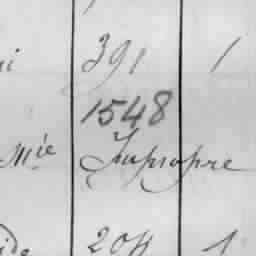 391 1
1548
mie Impropre
204 1